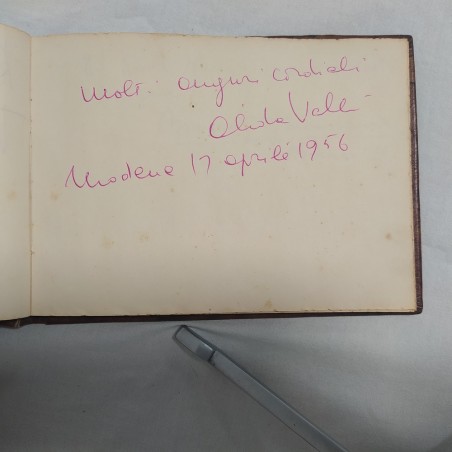 Molti auguri cordiali
Alida Valli
Modena 17 aprile 1956